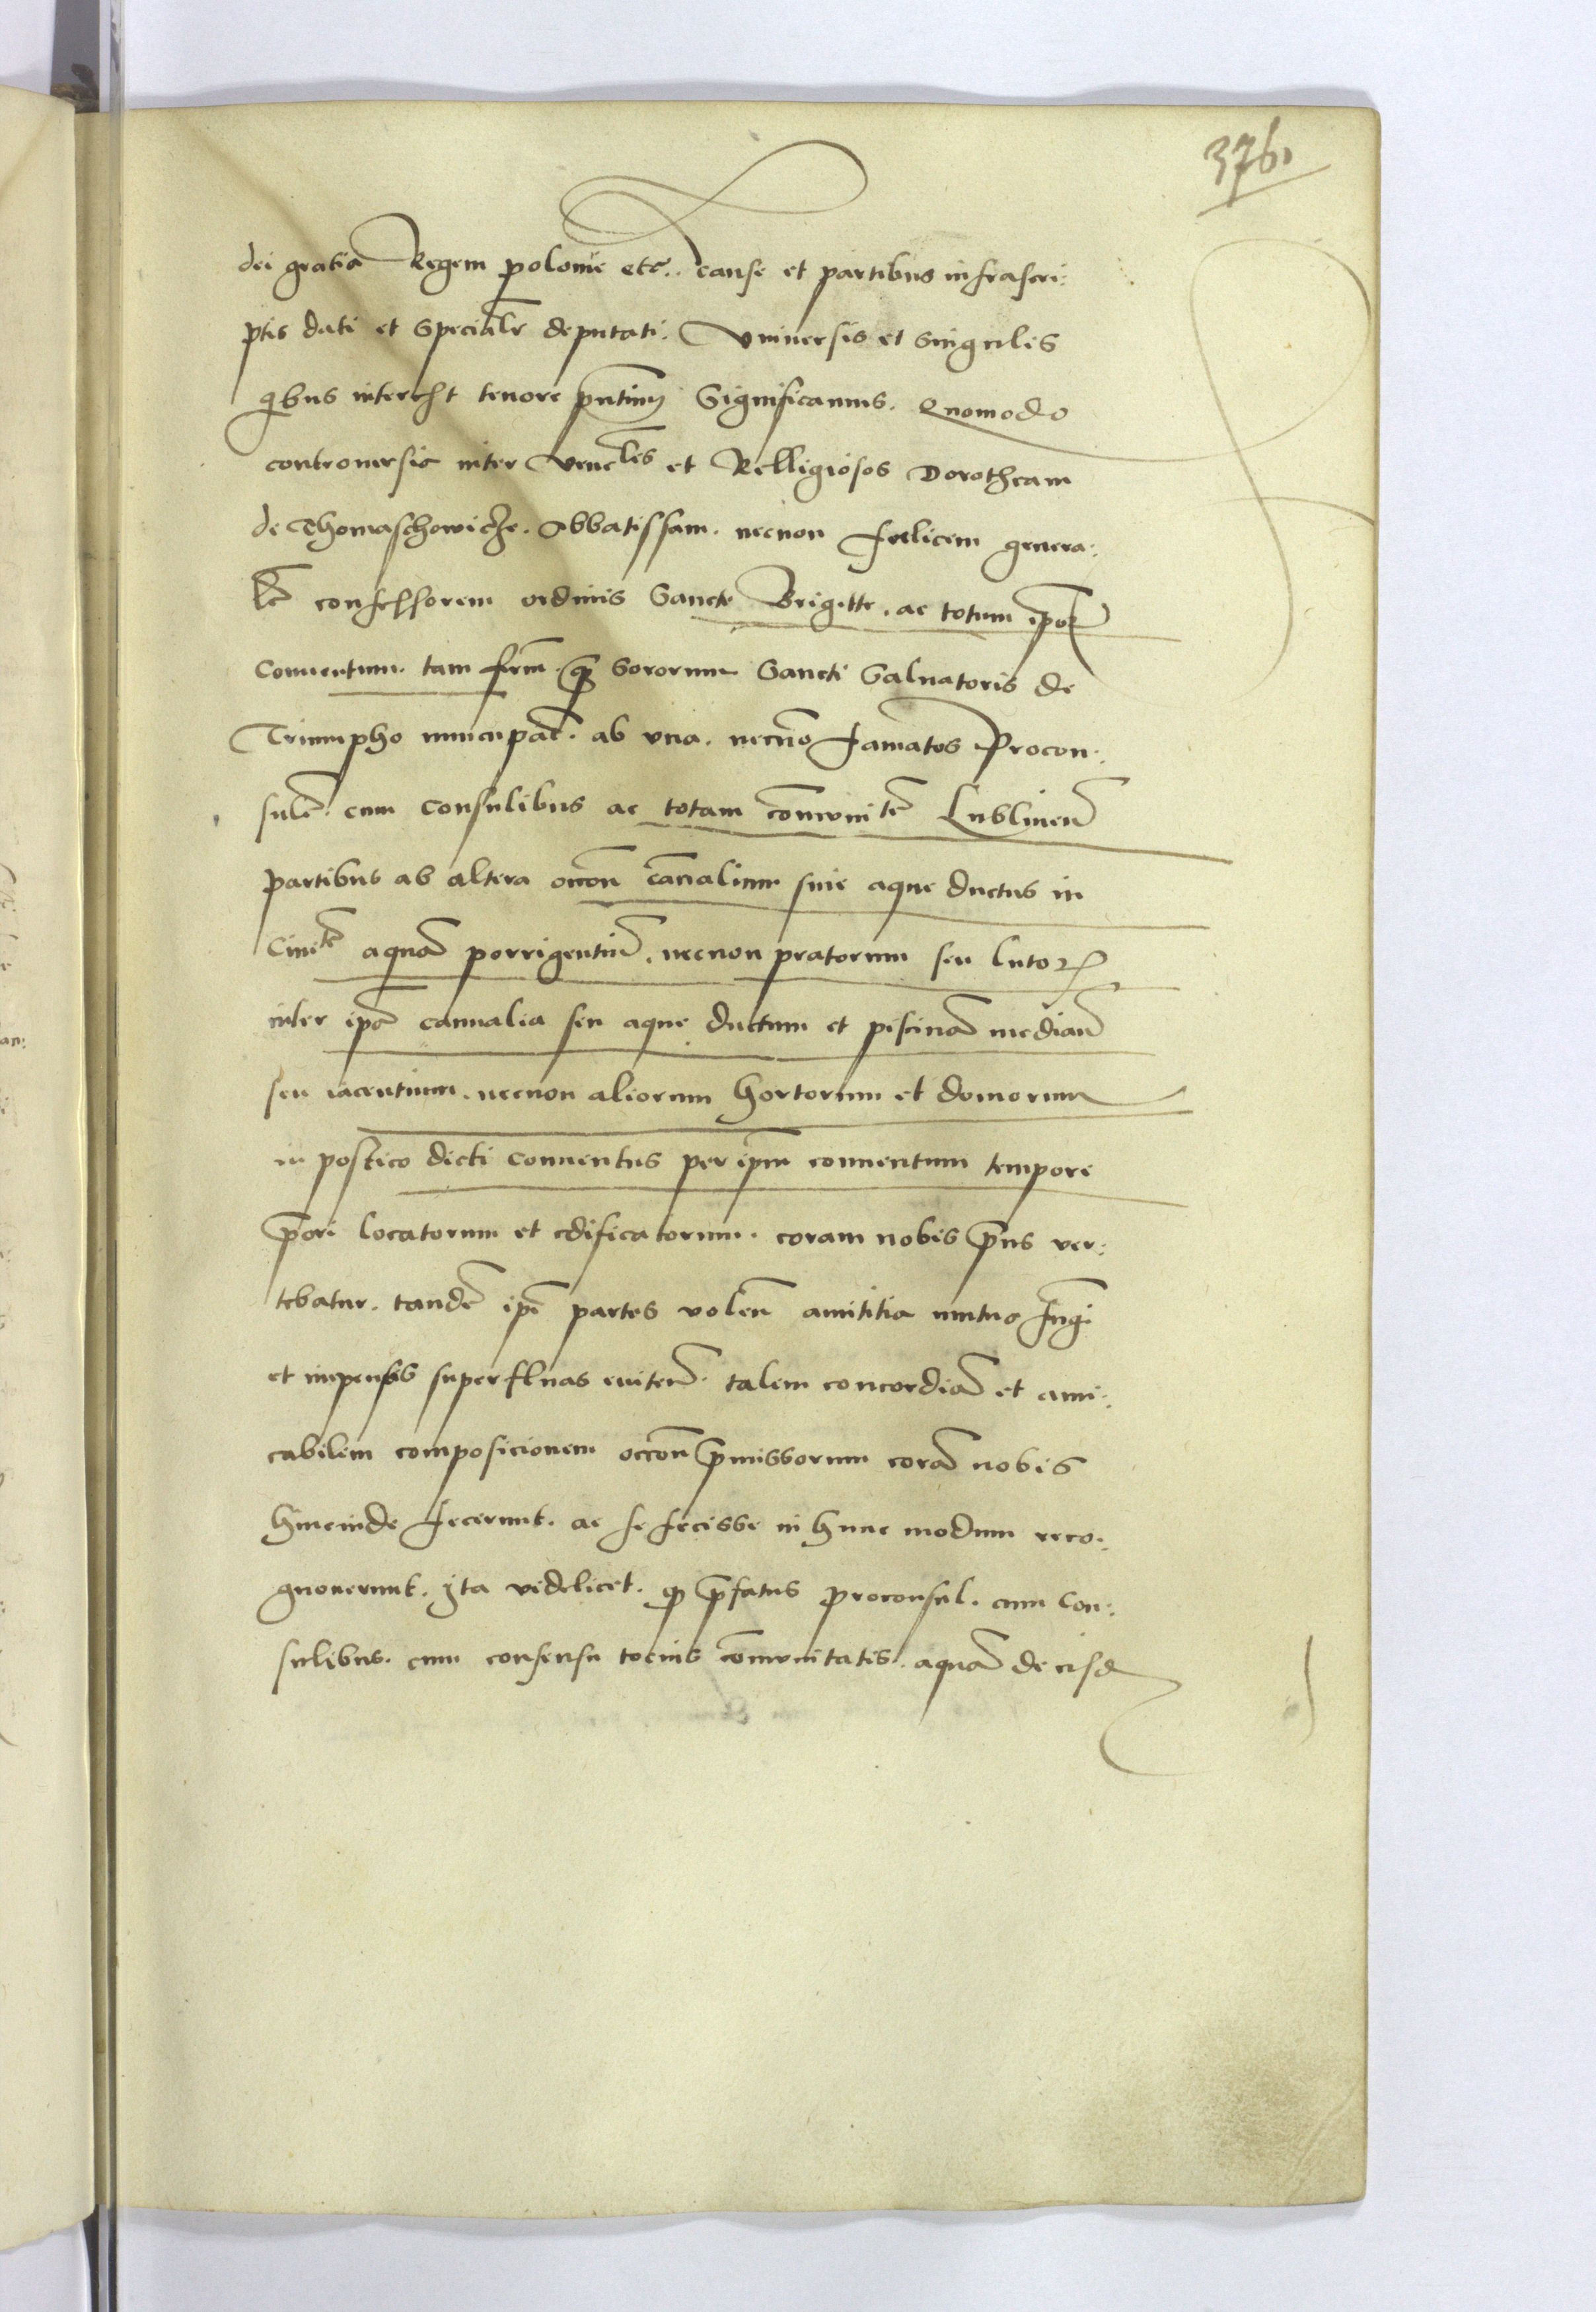 376
dei gratia Regem polonie etc. cause et partibus infrascri:
ptis dati et Specialr deputati. Vniuersis et Singulis
qbus interest tenore pntium Significamus. Quomodo
controuersia inter veneles et Relligiosos Dorotheam
de Thomaschowicze. Abbatissam. necnon felicem genera:
lē confessorem ordinis Sancte Brigitte. ac totum ipoꝝ
Conuentum. tam frm. qȝ Sororum Sancti Saluatoris de
Triumpho nuncupat. ab vna. necnō famatos Procon:
sulē. cum Consulibus ac totam cōmvnitē Lublineñ
partibus ab altera occoñ canalium siue aque ductus in
Ciuitē aquā porrigentiū. necnon pratorum seu lutoꝝ
inter ipā cannalia seu aque ductum et piscinā mediañ
seu iacentium. necnon aliorum hortorum et domorum
in postico dicti conuentus per ipm conuentum tempore
pori locatorum et edificatorum. coram nobis pns ver:
tebatur. tandē ipē partes voleñ amititia mutuo fungi
et impensas superfluas euiteñ. talem concordiā et ami:
cabilem composicionem occoñ pmissorum corā nobis
hincinde fecerunt. ac se fecisse in hunc modum reco:
gnouerunt. Ita videlicet. qȝ pfatus proconsul. cum Con:
sulibus. cum consensu tocius cōmvnitatis. aquā de eisd